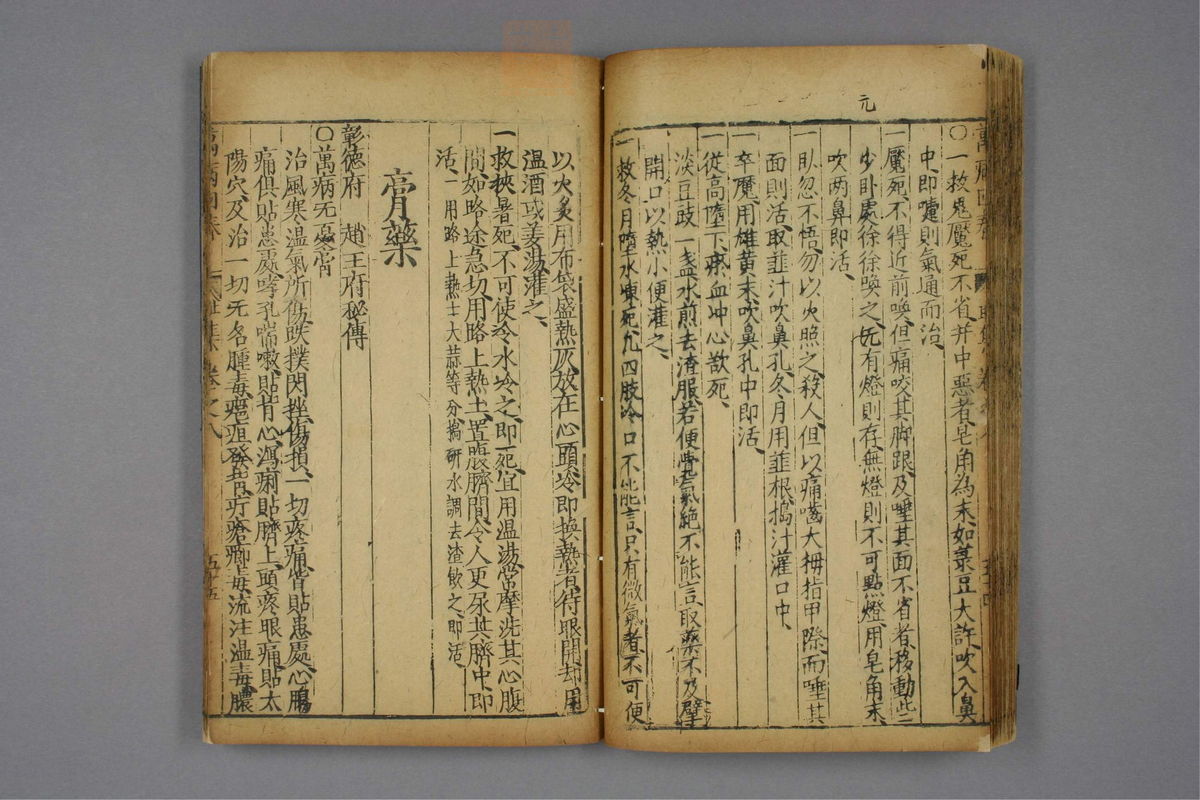 元
○一救鬼魘死不省并中惡者皂角為末如菉豆大許吹入鼻
中即嚏則氣通而治
一魘死不得近前喚但痛咬其脚跟及唾其面不省者移動些
少卧處徐徐喚之旡有燈則存無燈則不可點燈用皂角末
吹两鼻即活
一卧忽不悟勿以火照之殺人但以痛嚙大拇指甲際而唾其
面則活取韮汁吹鼻孔冬月用韮根搗汁灌口中
一卒魔用雄黄末吹鼻孔中即活
一從高墮下瘀血冲心欲死
淡豆豉一盏水煎去渣服若便覺氣絶不能言取藥不及擘
開口以熱小便灌之
一救冬月墮水凍死九四肢冷口不能言只有微氣者不可便
以火炙用布袋盛熱灰放在心頭冷即換熱者待眼開却用
温酒或姜湯灌之
一救挾暑死不可使冷水冷之即死宜用温湯常摩洗其心腹
間如路途急切用路上熱土置腹臍間令人更尿其臍中即
活一用路上熱土大蒜等分搗研水調去渣飲之即活
膏藥
彰德府 趙王府秘傳
○萬病无憂膏
治風寒温氣所傷跌撲閃挫傷損一切疼痛皆貼患處心腸
痛俱貼患處哮吼喘嗽貼背心瀉痢貼臍上頭疼眼痛貼太
陽穴及治一切无名腫毒癰疽發背疔瘡癤毒流注温毒膿
萬病回春
卷之八
五十五